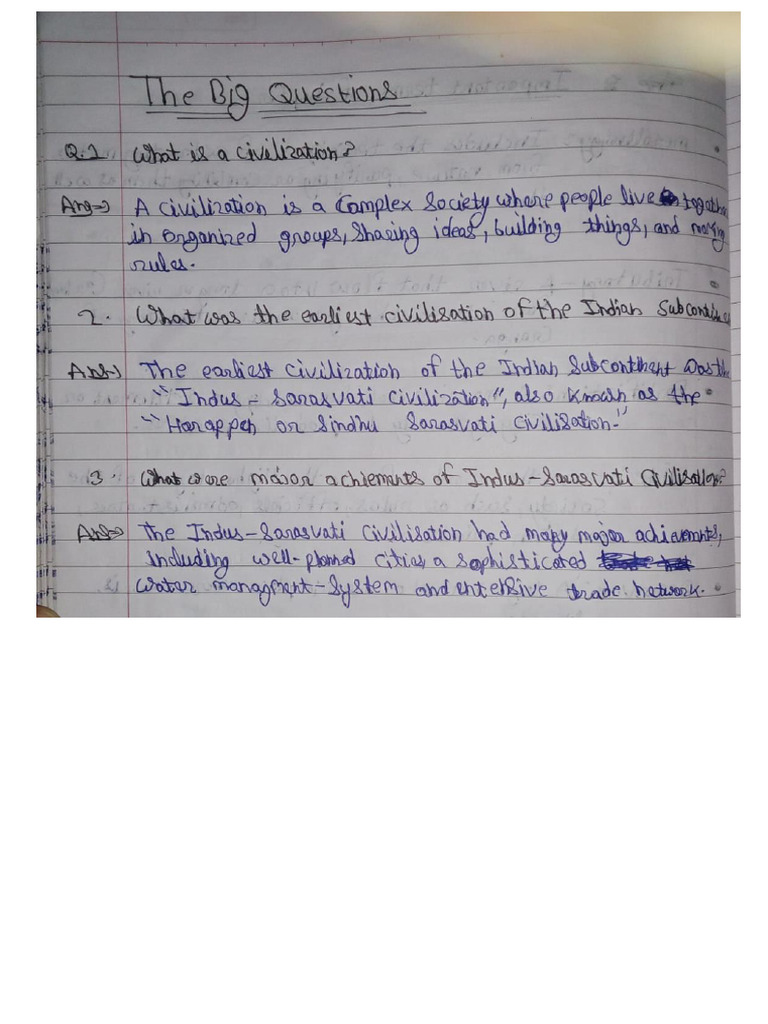 The Big Questions
Q.1 What is a Civilization?
Ans→ A civilization is a Complex Society where people live together
in organized groups, sharing ideas, building things, and making
rules.
2. What was the earliest civilisation of the Indian Subcontinent
Ans→ The earliest civilization of the Indian Subcontinent was the
"Indus - Sarasvati Civilization", also known as the
"Harappen or Sindhu Sarasvati Civilisation."
3. What were major achiements of Indus-Sarasvati Civilisation?
Ans→ The Indus-Sarasvati Civilisation had many major achievemnts,
including well-planned cities a sophisticated
water managment-System and entensive trade network.